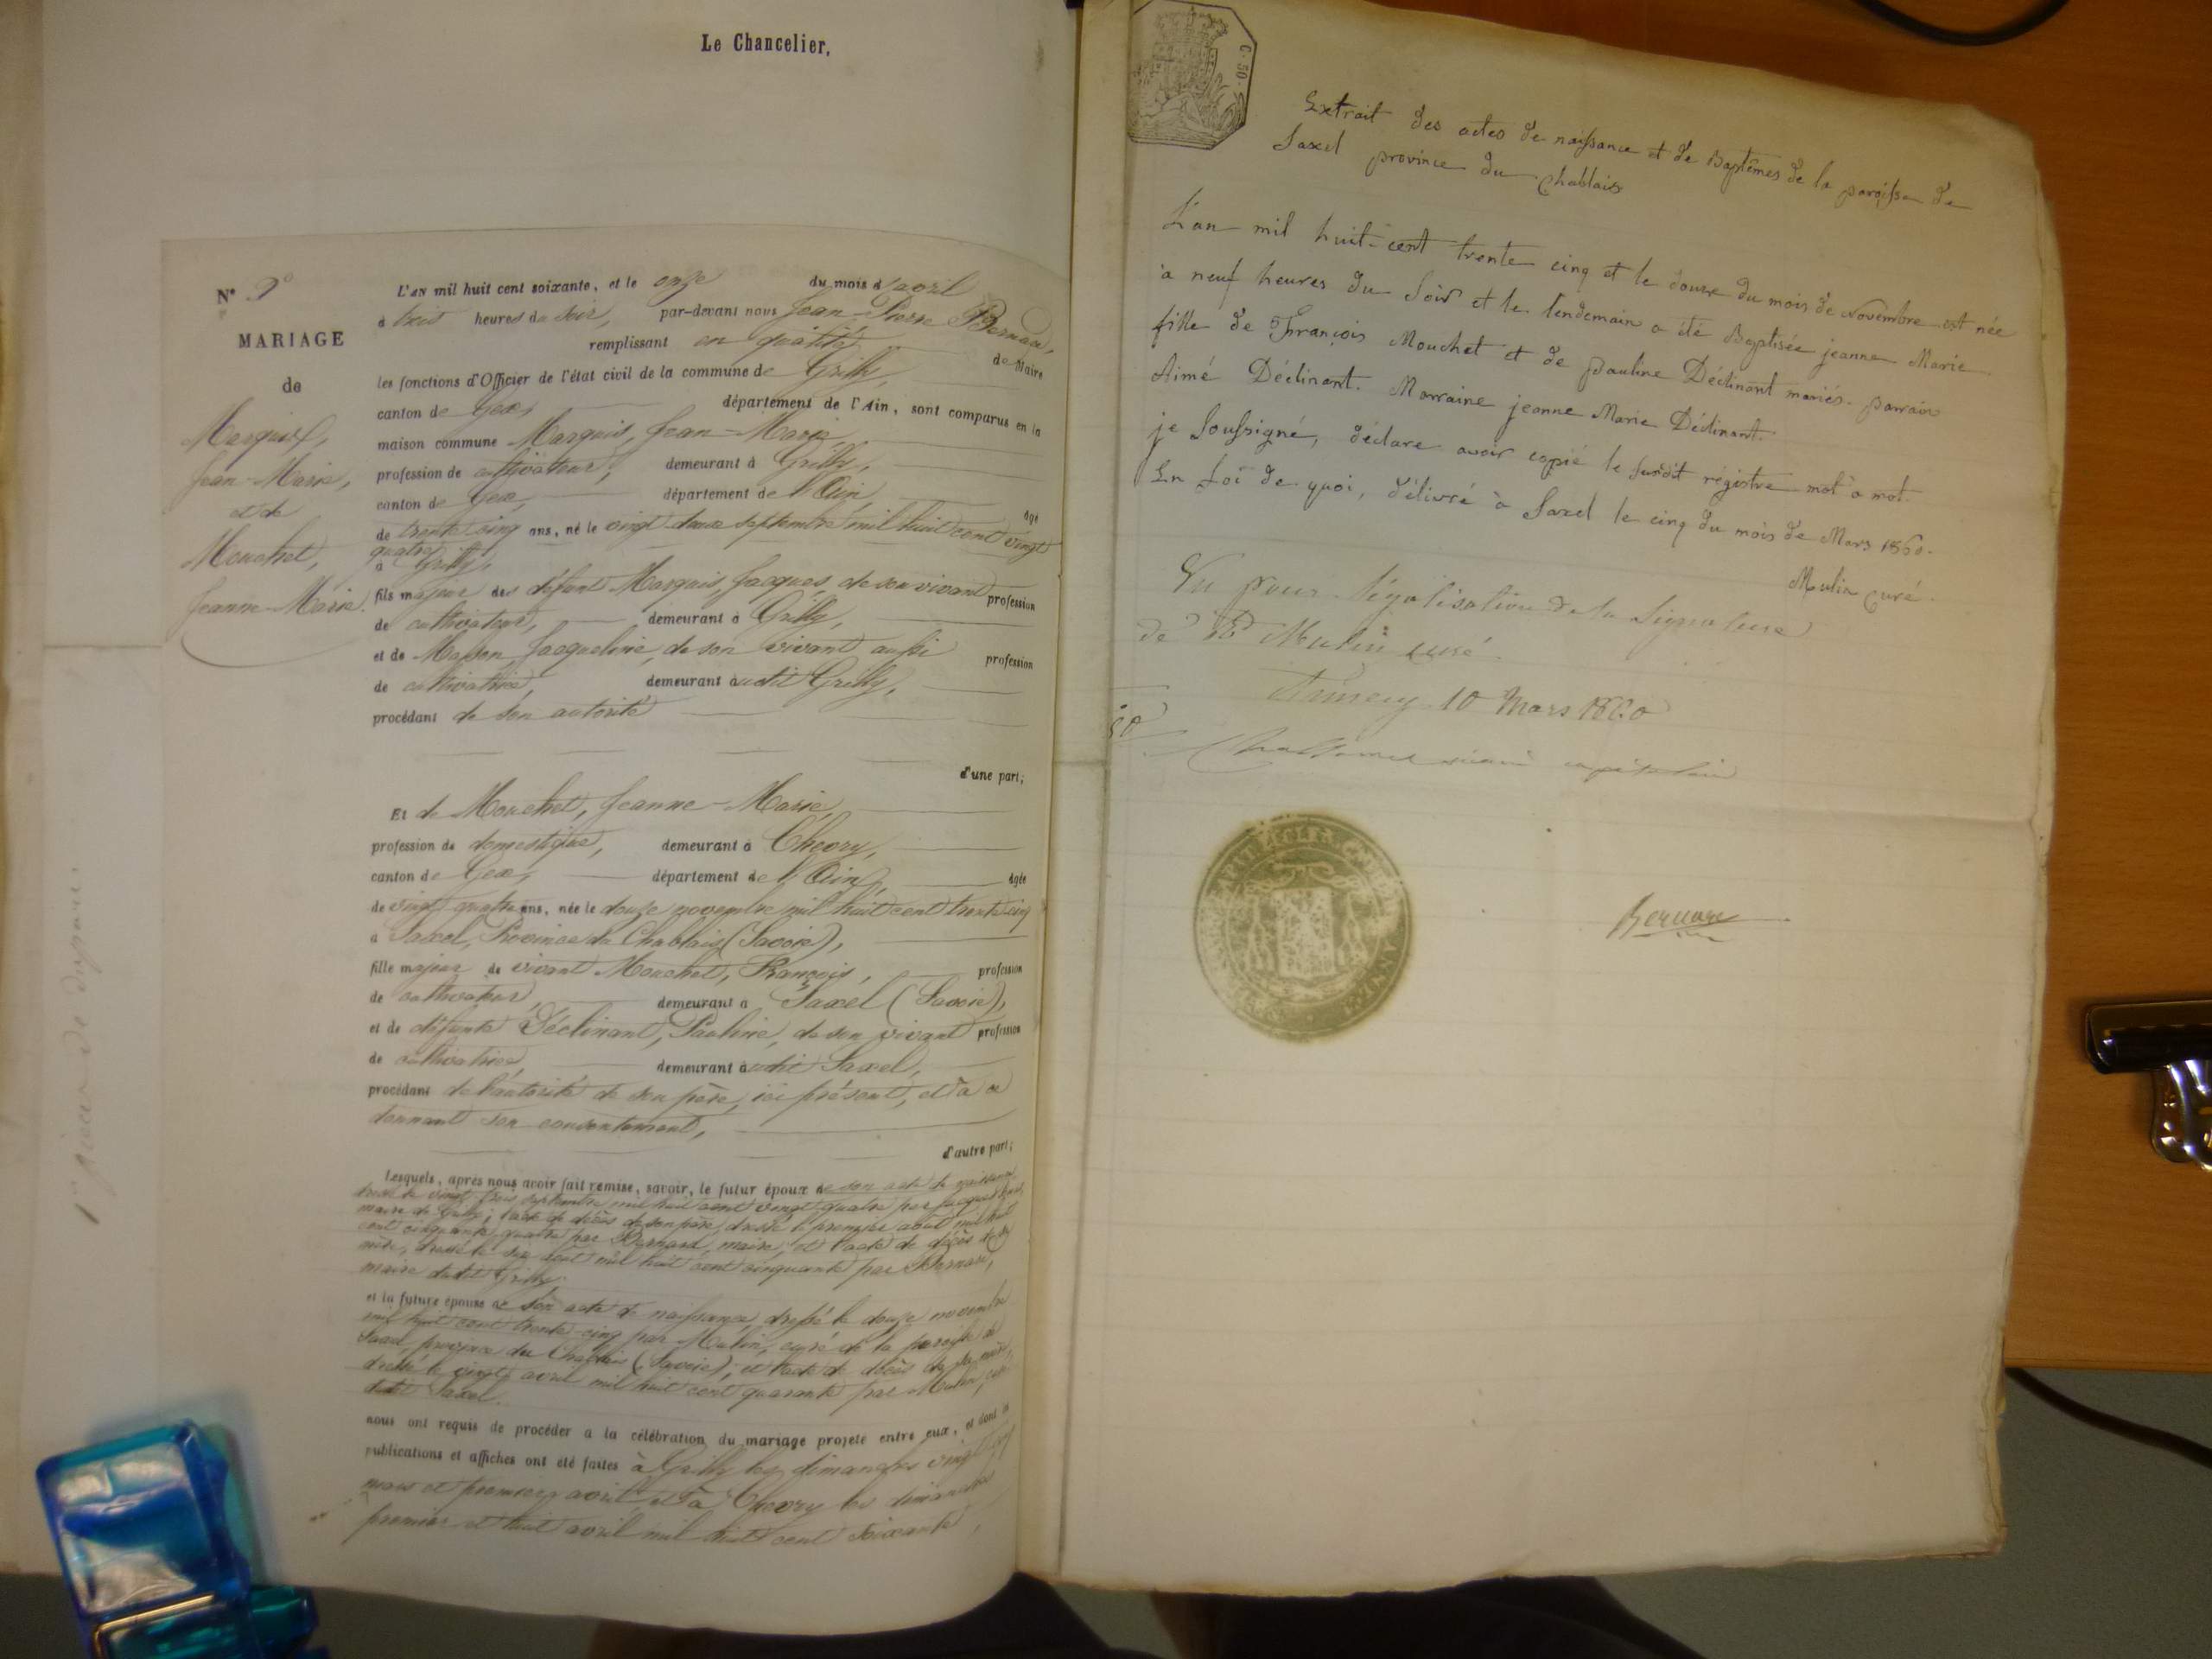 Le Chancelier,
N°
MARIAGE
de
Marquis,
Jean-Marie,
et de
Mouchet,
Jeanne-Marie.
L'AN mil huit cent soixante, et le onze du mois d'avril
à huit heures du soir, par-devant nous Jean-Pierre Bernard,
remplissant en qualité de Maire
les fonctions d'Officier de l'état civil de la commune de Grilly,
canton de Gex, département de l'Ain, sont comparus en la
maison commune Marquis, Jean-Marie,
profession de cultivateur, demeurant à Grilly,
canton de Gex, département de l'Ain, âgé
de trente cinq ans, né le vingt deux septembre mil huit cent vingt
quatre
à Grilly,
fils majeur de défunt Marquis, Jacques, de son vivant profession
de cultivateur, demeurant à Grilly,
et de Masson, Jacqueline, de son vivant aussi profession
de cultivatrice, demeurant audit Grilly,
procédant de son autorité
d'une part;
Et de Mouchet, Jeanne-Marie,
profession de domestique, demeurant à Chevry,
canton de Gex, département de l'Ain, âgée
de vingt quatre ans, née le douze novembre mil huit cent trente cinq
à Saxel, Province du Chablais (Savoie),
fille majeur de vivant Mouchet, François, profession
de cultivateur, demeurant à Saxel (Savoie),
et de défunte Déclinant, Pauline, de son vivant profession
de cultivatrice, demeurant audit Saxel,
procédant de l'autorité de son père, ici présent, et à ce
donnant son consentement,
d'autre part;
Lesquels, après nous avoir fait remise, savoir, le futur époux de son acte de naissance
dressé le vingt trois septembre mil huit cent vingt quatre par Jacques
maire de Grilly; l'acte de décès de son père, dressé le premier août mil huit
cent cinquante quatre par Bernard, maire; et l'acte de décès de sa
mère, dressé le six août mil huit cent cinquante par Bernard,
maire dudit Grilly.
et la future épouse de son acte de naissance, dressé le douze novembre
mil huit cent trente-cinq par Mulin, curé de la paroisse de
Saxel, province du Chablais (Savoie); et l'acte de décès de sa mère,
dressé le vingt avril mil huit cent quarante par Mulin, curé
dudit Saxel.
nous ont requis de procéder à la célébration du mariage projeté entre eux, et dont les
publications et affiches ont été faites à Grilly les dimanches vingt cinq
mars et premier avril, et à Chevry les dimanches
premier et huit avril mil huit cent soixante,
C. 50
Extrait des actes de naissance et de Baptêmes de la paroisse de
Saxel province du Chablais
L'an mil huit-cent trente cinq et le douze du mois de Novembre est née
à neuf heures du soir et le lendemain a été Baptisée jeanne Marie
fille de François Mouchet et de pauline Déclinant mariés. parrain
Aimé Déclinant. Marraine jeanne Marie Déclinant.
je soussigné, déclare avoir copié le susdit régistre mot à mot.
En foi de quoi, délivré à Saxel le cinq du mois de Mars 1860.
Mulin curé.
Vu pour légalisation de la signature
de Rd Mulin curé.
Annecy 10 Mars 1860
Bernard